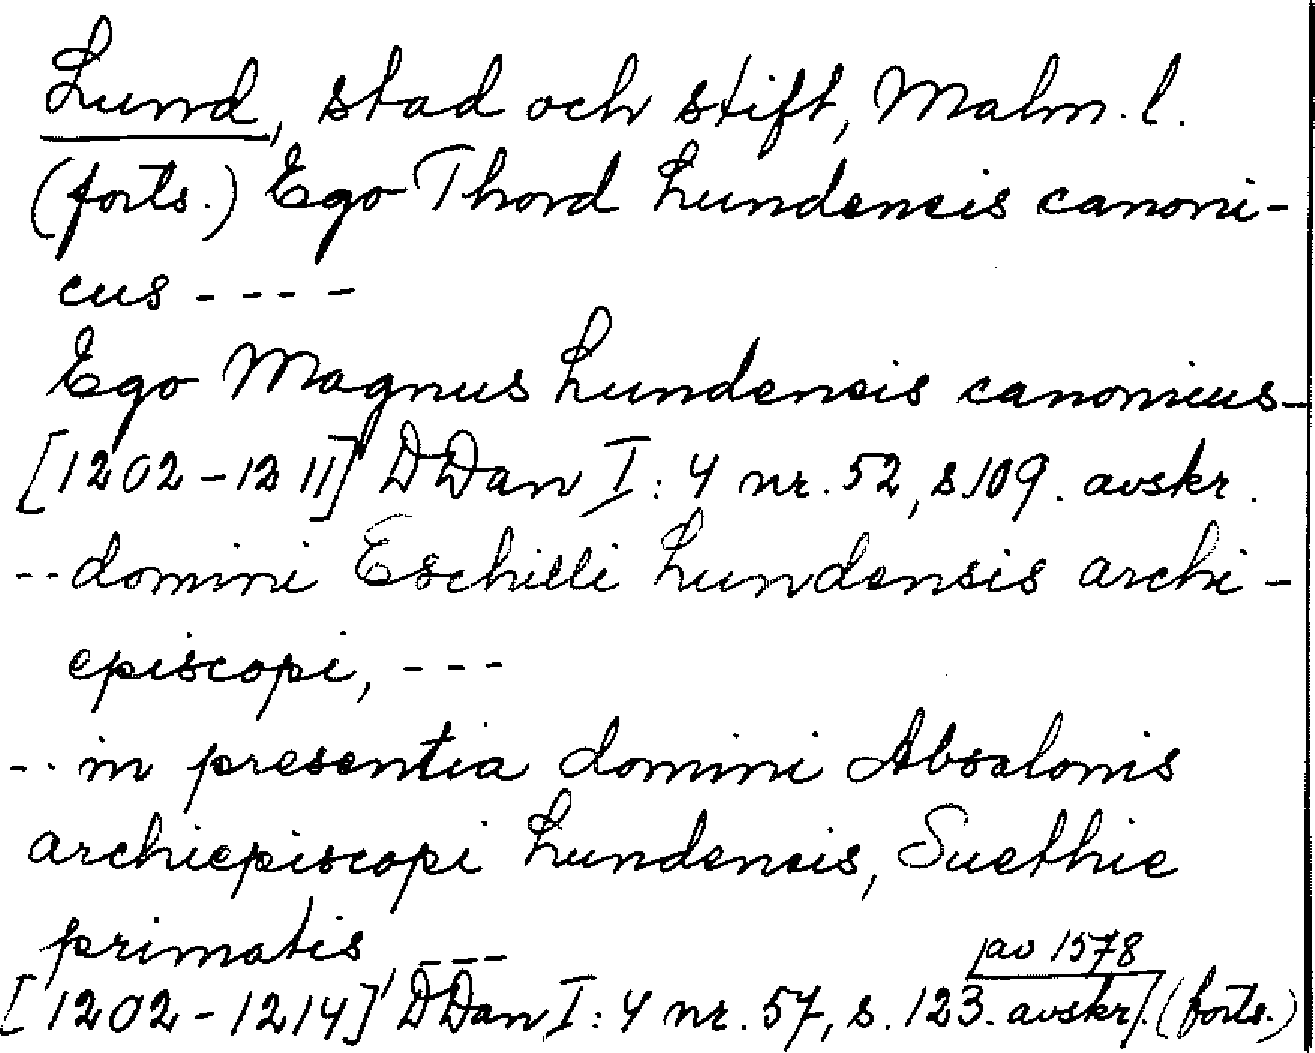 Lund, stad och stift, Malm. l.
(forts.) Ego Thord Lundensis canoni-
cus ----
Ego Magnus Lundensis canonicus-
[1202-1211] DDan I: 4 nr. 52, s. 109. avskr.
-- domini Eschilli Lundensis archi-
episcopi, ---
-- in presentia domini Absalonis
archiepiscopi Lundensis, Suethie
primatis ---
av 1578
[1202-1214] DDan I: 4 nr. 57, s. 123. avskr. (forts.)